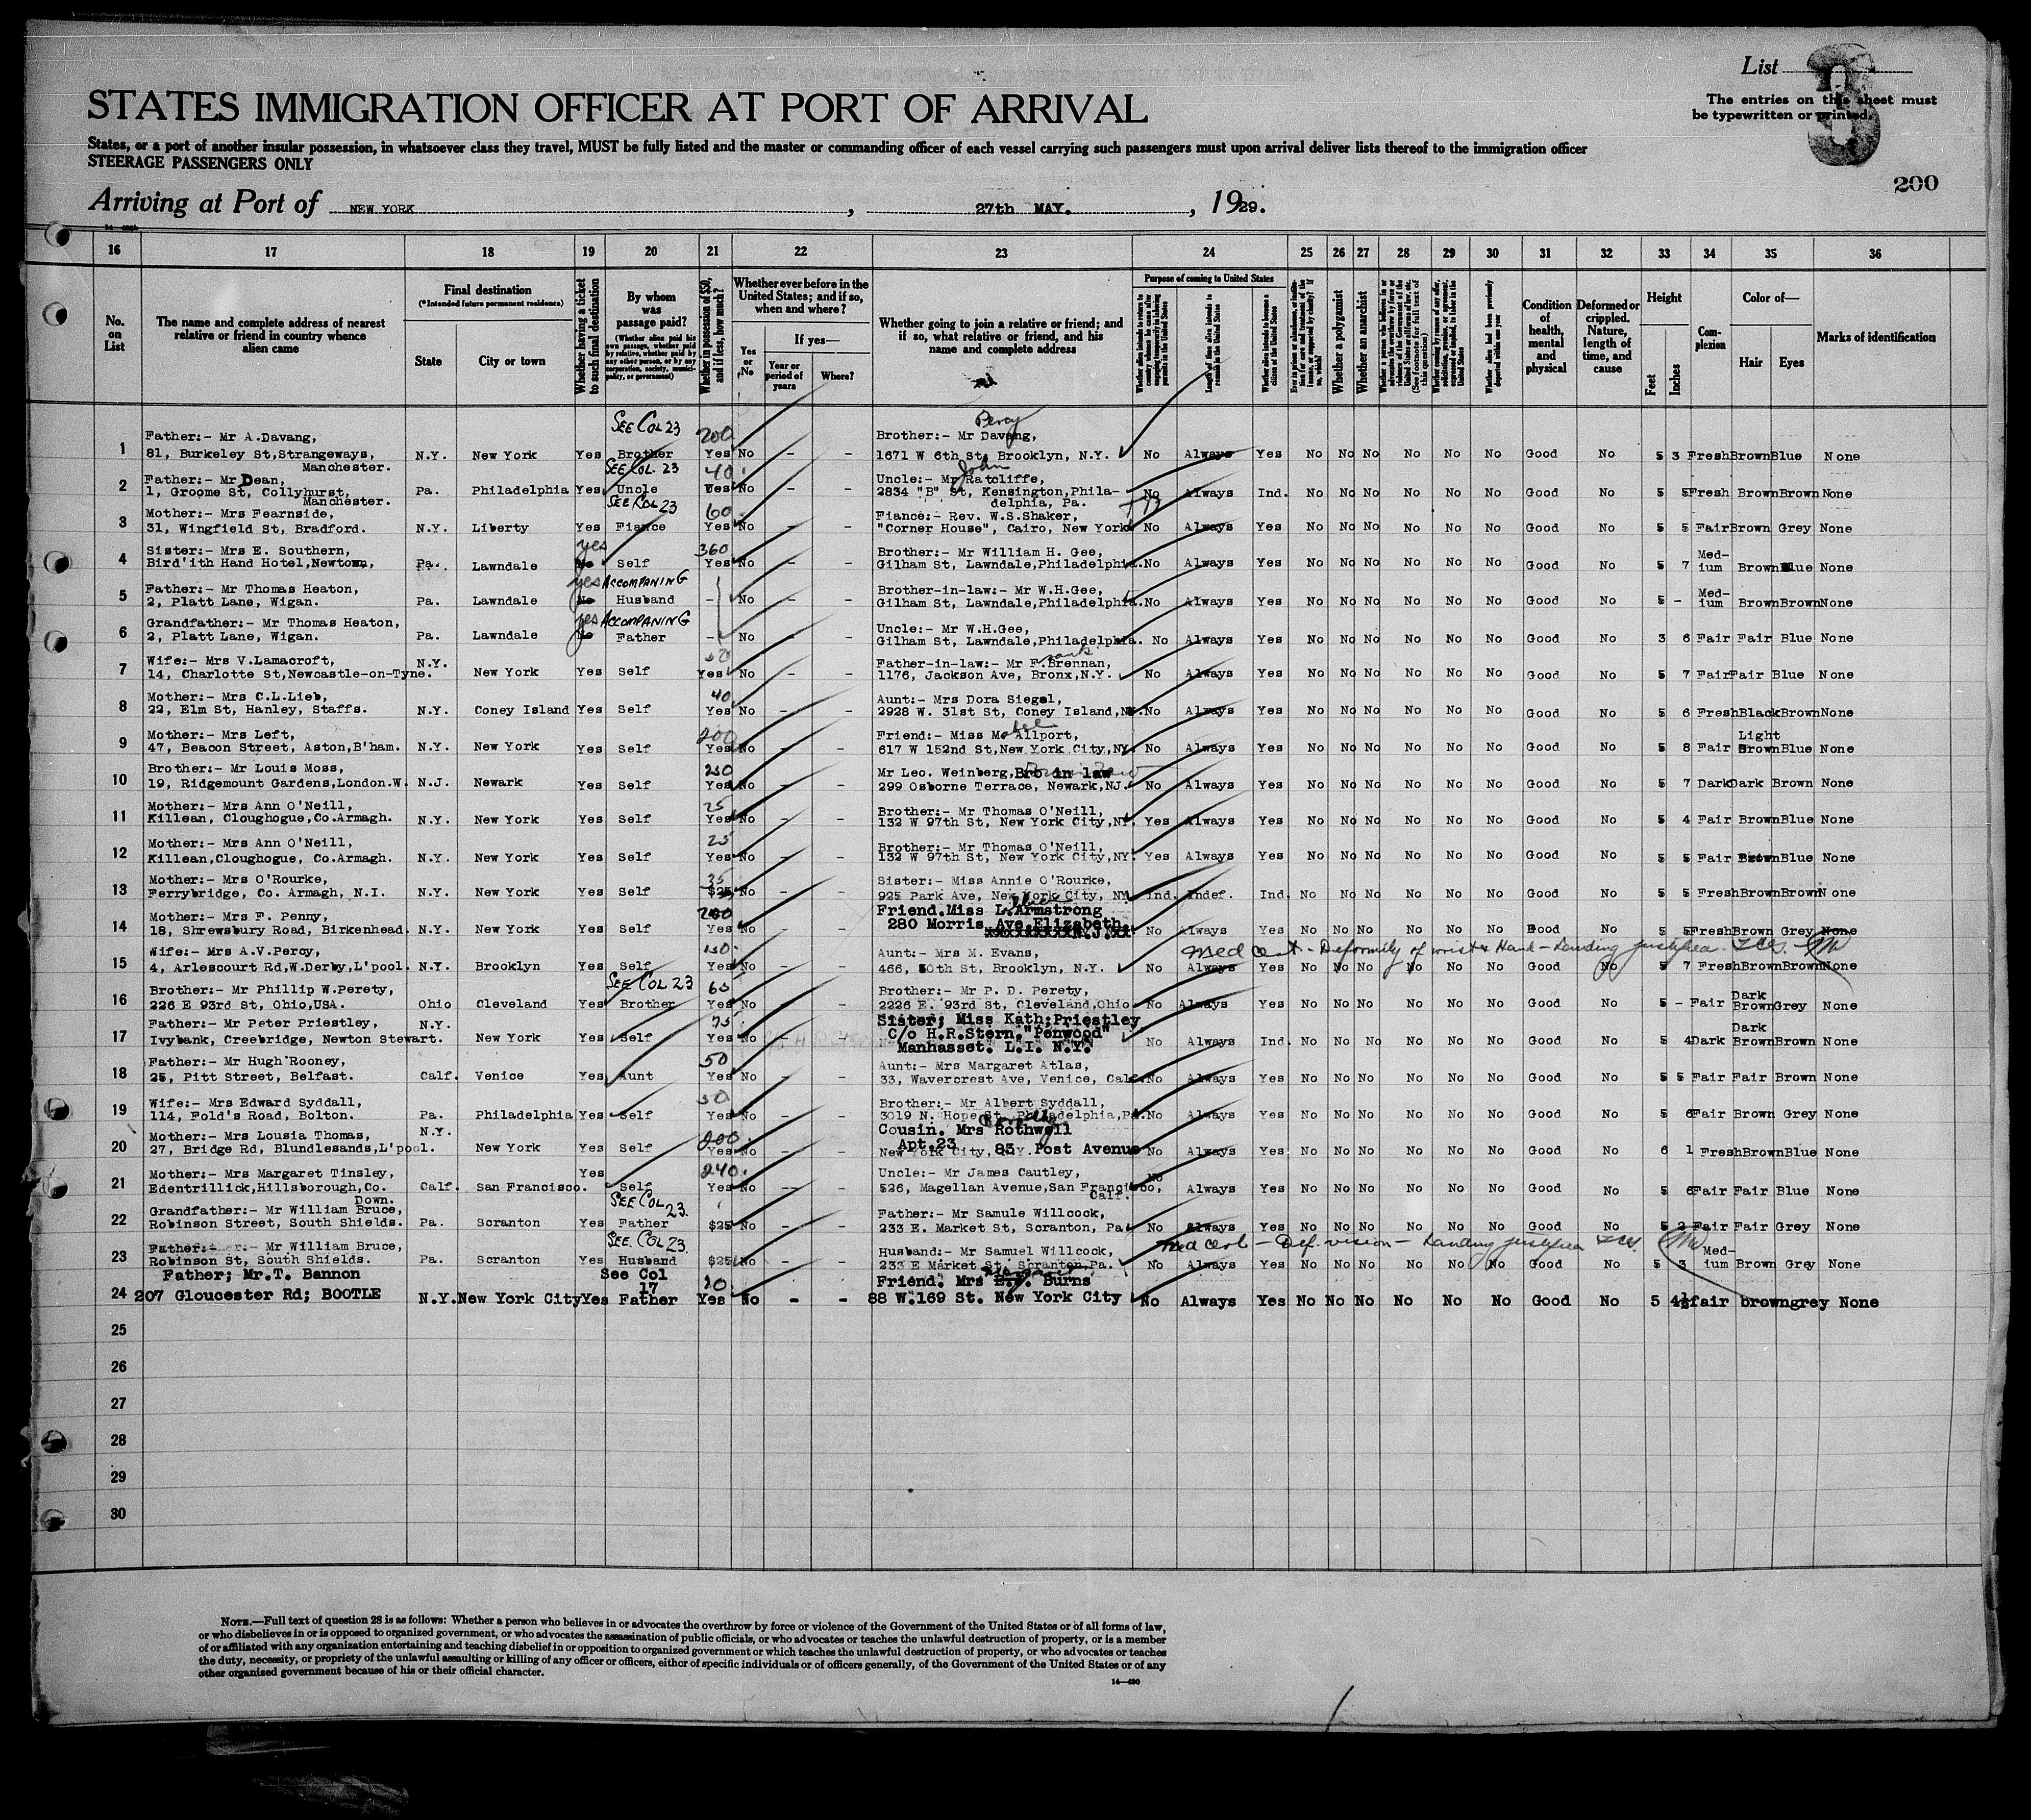 List 3
The entries on this sheet must
be typewritten or printed.
STATES IMMIGRATION OFFICER AT PORT OF ARRIVAL
States, or a port of another insular possession, in whatsoever class they travel, MUST be fully listed and the master or commanding officer of each vessel carrying such passengers must upon arrival deliver lists thereof to the immigration officer
STEERAGE PASSENGERS ONLY
200
Arriving at Port of NEW YORK, 27th MAY., 1929.
16 17 18 19 20 21 22 23 24 25 26 27 28 29 30 31 32 33 34 35 36
No. on List
The name and complete address of nearest relative or friend in country whence alien came
Final destination
(*Intended future permanent residence)
State
City or town
Whether having a ticket to such final destination
By whom was passage paid?
(Whether alien paid his own passage, whether paid by relative, whether paid by any other person, or by any corporation, society, municipality, or government)
Whether in possession of $50, and if less, how much?
Whether ever before in the United States; and if so, when and where?
Yes or No
If yes—
Year or period of years
Where?
Whether going to join a relative or friend; and if so, what relative or friend, and his name and complete address
Purpose of coming to United States
Length of time alien intends to remain in the United States
Whether alien intends to become a citizen of the United States
Whether a polygamist
Whether an anarchist
Condition of health, mental and physical
Deformed or crippled. Nature, length of time, and cause
Height
Feet
Inches
Complexion
Color of—
Hair
Eyes
Marks of identification
1 Father:- Mr A.Davang, 81, Burkeley St,Strangeways, Manchester. N.Y. New York Yes SEE COL 23 Brother 200 Yes No - - Percy Brother:- Mr Davang, 1671 W 6th St, Brooklyn, N.Y. No Always Yes No No No No No No Good No 5 3 Fresh Brown Blue None
2 Father:- Mr Dean, 1, Groome St, Collyhurst, Manchester. Pa. Philadelphia Yes SEE COL. 23 Uncle 40 Yes No - - John Uncle:- Mr Ratcliffe, 2834 "B" St, Kensington,Philadelphia, Pa. No Always Ind. No No No No No No Good No 5 5 Fresh Brown Brown None
3 Mother:- Mrs Fearnside, 31, Wingfield St, Bradford. N.Y. Liberty Yes SEE COL 23 Fiance 60 Yes No - - Fiance:- Rev. W.S.Shaker, "Corner House", Cairo, New York No Always Yes No No No No No No Good No 5 5 Fair Brown Grey None
4 Sister:- Mrs E. Southern, Bird'ith Hand Hotel,Newtown, Pa. Lawndale yes No Self 360 Yes No - - Brother:- Mr William H. Gee, Gilham St, Lawndale,Philadelphia. No Always Yes No No No No No No Good No 5 7 Medium Brown Blue None
5 Father:- Mr Thomas Heaton, 2, Platt Lane, Wigan. Pa. Lawndale yes No ACCOMPANING Husband - No - - Brother-in-law:- Mr W.H.Gee, Gilham St, Lawndale,Philadelphia. No Always Yes No No No No No No Good No 5 - Medium Brown Brown None
6 Grandfather:- Mr Thomas Heaton, 2, Platt Lane, Wigan. Pa. Lawndale yes No ACCOMPANING Father - No - - Uncle:- Mr W.H.Gee, Gilham St, Lawndale,Philadelphia. No Always Yes No No No No No No Good No 3 6 Fair Fair Blue None
7 Wife:- Mrs V.Lamacroft, 14, Charlotte St,Newcastle-on-Tyne. N.Y. New York Yes Self Yes No - - Father-in-law:- Mr F.rank Brennan, 1176, Jackson Ave, Bronx,N.Y. No Always Yes No No No No No No Good No 5 7 Fair Fair Blue None
8 Mother:- Mrs C.L.Lieb, 22, Elm St, Hanley, Staffs. N.Y. Coney Island Yes Self 40 Yes No - - Aunt:- Mrs Dora Siegal, 2928 W. 31st St, Coney Island,NY. No Always Yes No No No No No No Good No 5 6 Fresh Black Brown None
9 Mother:- Mrs Left, 47, Beacon Street, Aston,B'ham. N.Y. New York Yes Self 200 Yes No - - Friend:- Miss Mabel Allport, 617 W 152nd St,New York City,NY. No Always Yes No No No No No No Good No 5 8 Fair Light Brown Blue None
10 Brother:- Mr Louis Moss, 19, Ridgemount Gardens,London.W. N.J. Newark Yes Self 250 Yes No - - Mr Leo. Weinberg, Bro in law 299 Osborne Terrace, Newark,NJ. No Always Yes No No No No No No Good No 5 7 Dark Dark Brown None
11 Mother:- Mrs Ann O'Neill, Killean, Cloughogue,Co.Armagh. N.Y. New York Yes Self 25 Yes No - - Brother:- Mr Thomas O'Neill, 132 W 97th St, New York City,NY. Yes Always Yes No No No No No No Good No 5 4 Fair Brown Blue None
12 Mother:- Mrs Ann O'Neill, Killean,Cloughogue, Co.Armagh. N.Y. New York Yes Self 25 Yes No - - Brother:- Mr Thomas O'Neill, 132 W 97th St, New York City,NY. Yes Always Yes No No No No No No Good No 5 5 Fair Brown Blue None
13 Mother:- Mrs O'Rourke, Ferrybridge, Co. Armagh, N.I. N.Y. New York Yes Self 25 $25 No - - Sister:- Miss Annie O'Rourke, 925 Park Ave, New York City, NY. Ind. Indef. Ind. No No No No No No Good No 5 5 Fresh Brown Brown None
14 Mother:- Mrs F. Penny, 18, Shrewsbury Road, Birkenhead. N.Y. New York Yes Self 200 Yes No - - Friend.Miss L.Armstrong 280 Morris Ave.Elizabeth. N.J. No Always Yes No No No No No No Good No 5 5 Fresh Brown Grey None
Med Cert - Deformity of wrist & Hand - Landing justified
15 Wife:- Mrs A.V.Percy, 4, Arlescourt Rd,W.Derby,L'pool. N.Y. Brooklyn Yes Self Yes No - - Aunt:- Mrs M. Evans, 466, 50th St, Brooklyn, N.Y. No Always Yes No No No No No No Good No 5 7 Fresh Brown Brown None
16 Brother:- Mr Phillip W.Perety, 226 E 93rd St, Ohio,USA. Ohio Cleveland Yes SEE COL 23 Brother 65 Yes No - - Brother:- Mr P. D. Perety, 2226 E. 93rd St, Cleveland,Ohio. No Always Yes No No No No No No Good No 5 - Fair Dark Brown Grey None
17 Father:- Mr Peter Priestley, Ivybank, Creebridge, Newton Stewart. N.Y. New York Yes Self 75 Yes No - - Sister; Miss Kath;Priestley C/o H.R.Stern."Penwood" Manhasset. L.I. N.Y. No Always Ind. No No No No No No Good No 5 4 Dark Dark Brown Brown None
18 Father:- Mr Hugh Rooney, 25, Pitt Street, Belfast. Calf. Venice Yes Aunt 50 Yes No - - Aunt:- Mrs Margaret Atlas, 33, Wavercrest Ave, Venice, Calf. No Always Yes No No No No No No Good No 5 5 Fair Fair Brown None
19 Wife:- Mrs Edward Syddall, 114, Fold's Road, Bolton. Pa. Philadelphia Yes Self 50 Yes No - - Brother:- Mr Albert Syddall, 3019 N. Hope St, Philadelphia,Pa. No Always Yes No No No No No No Good No 5 6 Fair Brown Grey None
20 Mother:- Mrs Lousia Thomas, 27, Bridge Rd, Blundlesands,L'pool. N.Y. New York Yes Self 200 Yes No - - Cousin. Mrs Rothwell Apt.23 85 Post Avenue New York City, N.Y. No Always Yes No No No No No No Good No 6 1 Fresh Brown Blue None
21 Mother:- Mrs Margaret Tinsley, Edentrillick,Hillsborough,Co. Down. Calf. San Francisco. Yes Self 240 Yes No -- - Uncle:- Mr James Cautley, 526, Magellan Avenue,San Francisco, Calf. No Always Yes No No No No No No Good No 5 6 Fair Fair Blue None
22 Grandfather:- Mr William Bruce, Robinson Street, South Shields. Pa. Scranton Yes SEE COL 23. Father $25 No - - Father:- Mr Samule Willcock, 233 E. Market St, Scranton, Pa. No Always Yes No No No No No No Good No 5 2 Fair Fair Grey None
Med Cert - Def. vision - Landing justified
23 Father:- Mr William Bruce, Robinson St, South Shields. Pa. Scranton Yes SEE COL 23. Husband $25 No - - Husband:- Mr Samuel Willcock, 233 E Market St, Scranton,Pa. No Always Yes No No No No No No Good No 5 3 Medium Brown Grey None
24 Father; Mr.T. Bannon 207 Gloucester Rd; BOOTLE N.Y. New York City Yes See Col 17 Father 20 Yes No - - Friend. Mrs Burns 88 W.169 St. New York City No Always Yes No No No No No No Good No 5 4½ fair brown grey None
25
26
27
28
29
30
NOTE.—Full text of question 28 is as follows: Whether a person who believes in or advocates the overthrow by force or violence of the Government of the United States or of all forms of law,
or who disbelieves in or is opposed to organized government, or who advocates the assassination of public officials, or who advocates or teaches the unlawful destruction of property, or is a member
of or affiliated with any organization entertaining and teaching disbelief in or opposition to organized government or which teaches the unlawful destruction of property, or who advocates or teaches
the duty, necessity, or propriety of the unlawful assaulting or killing of any officer or officers, either of specific individuals or of officers generally, of the Government of the United States or of any
other organized government because of his or their official character.
14—430